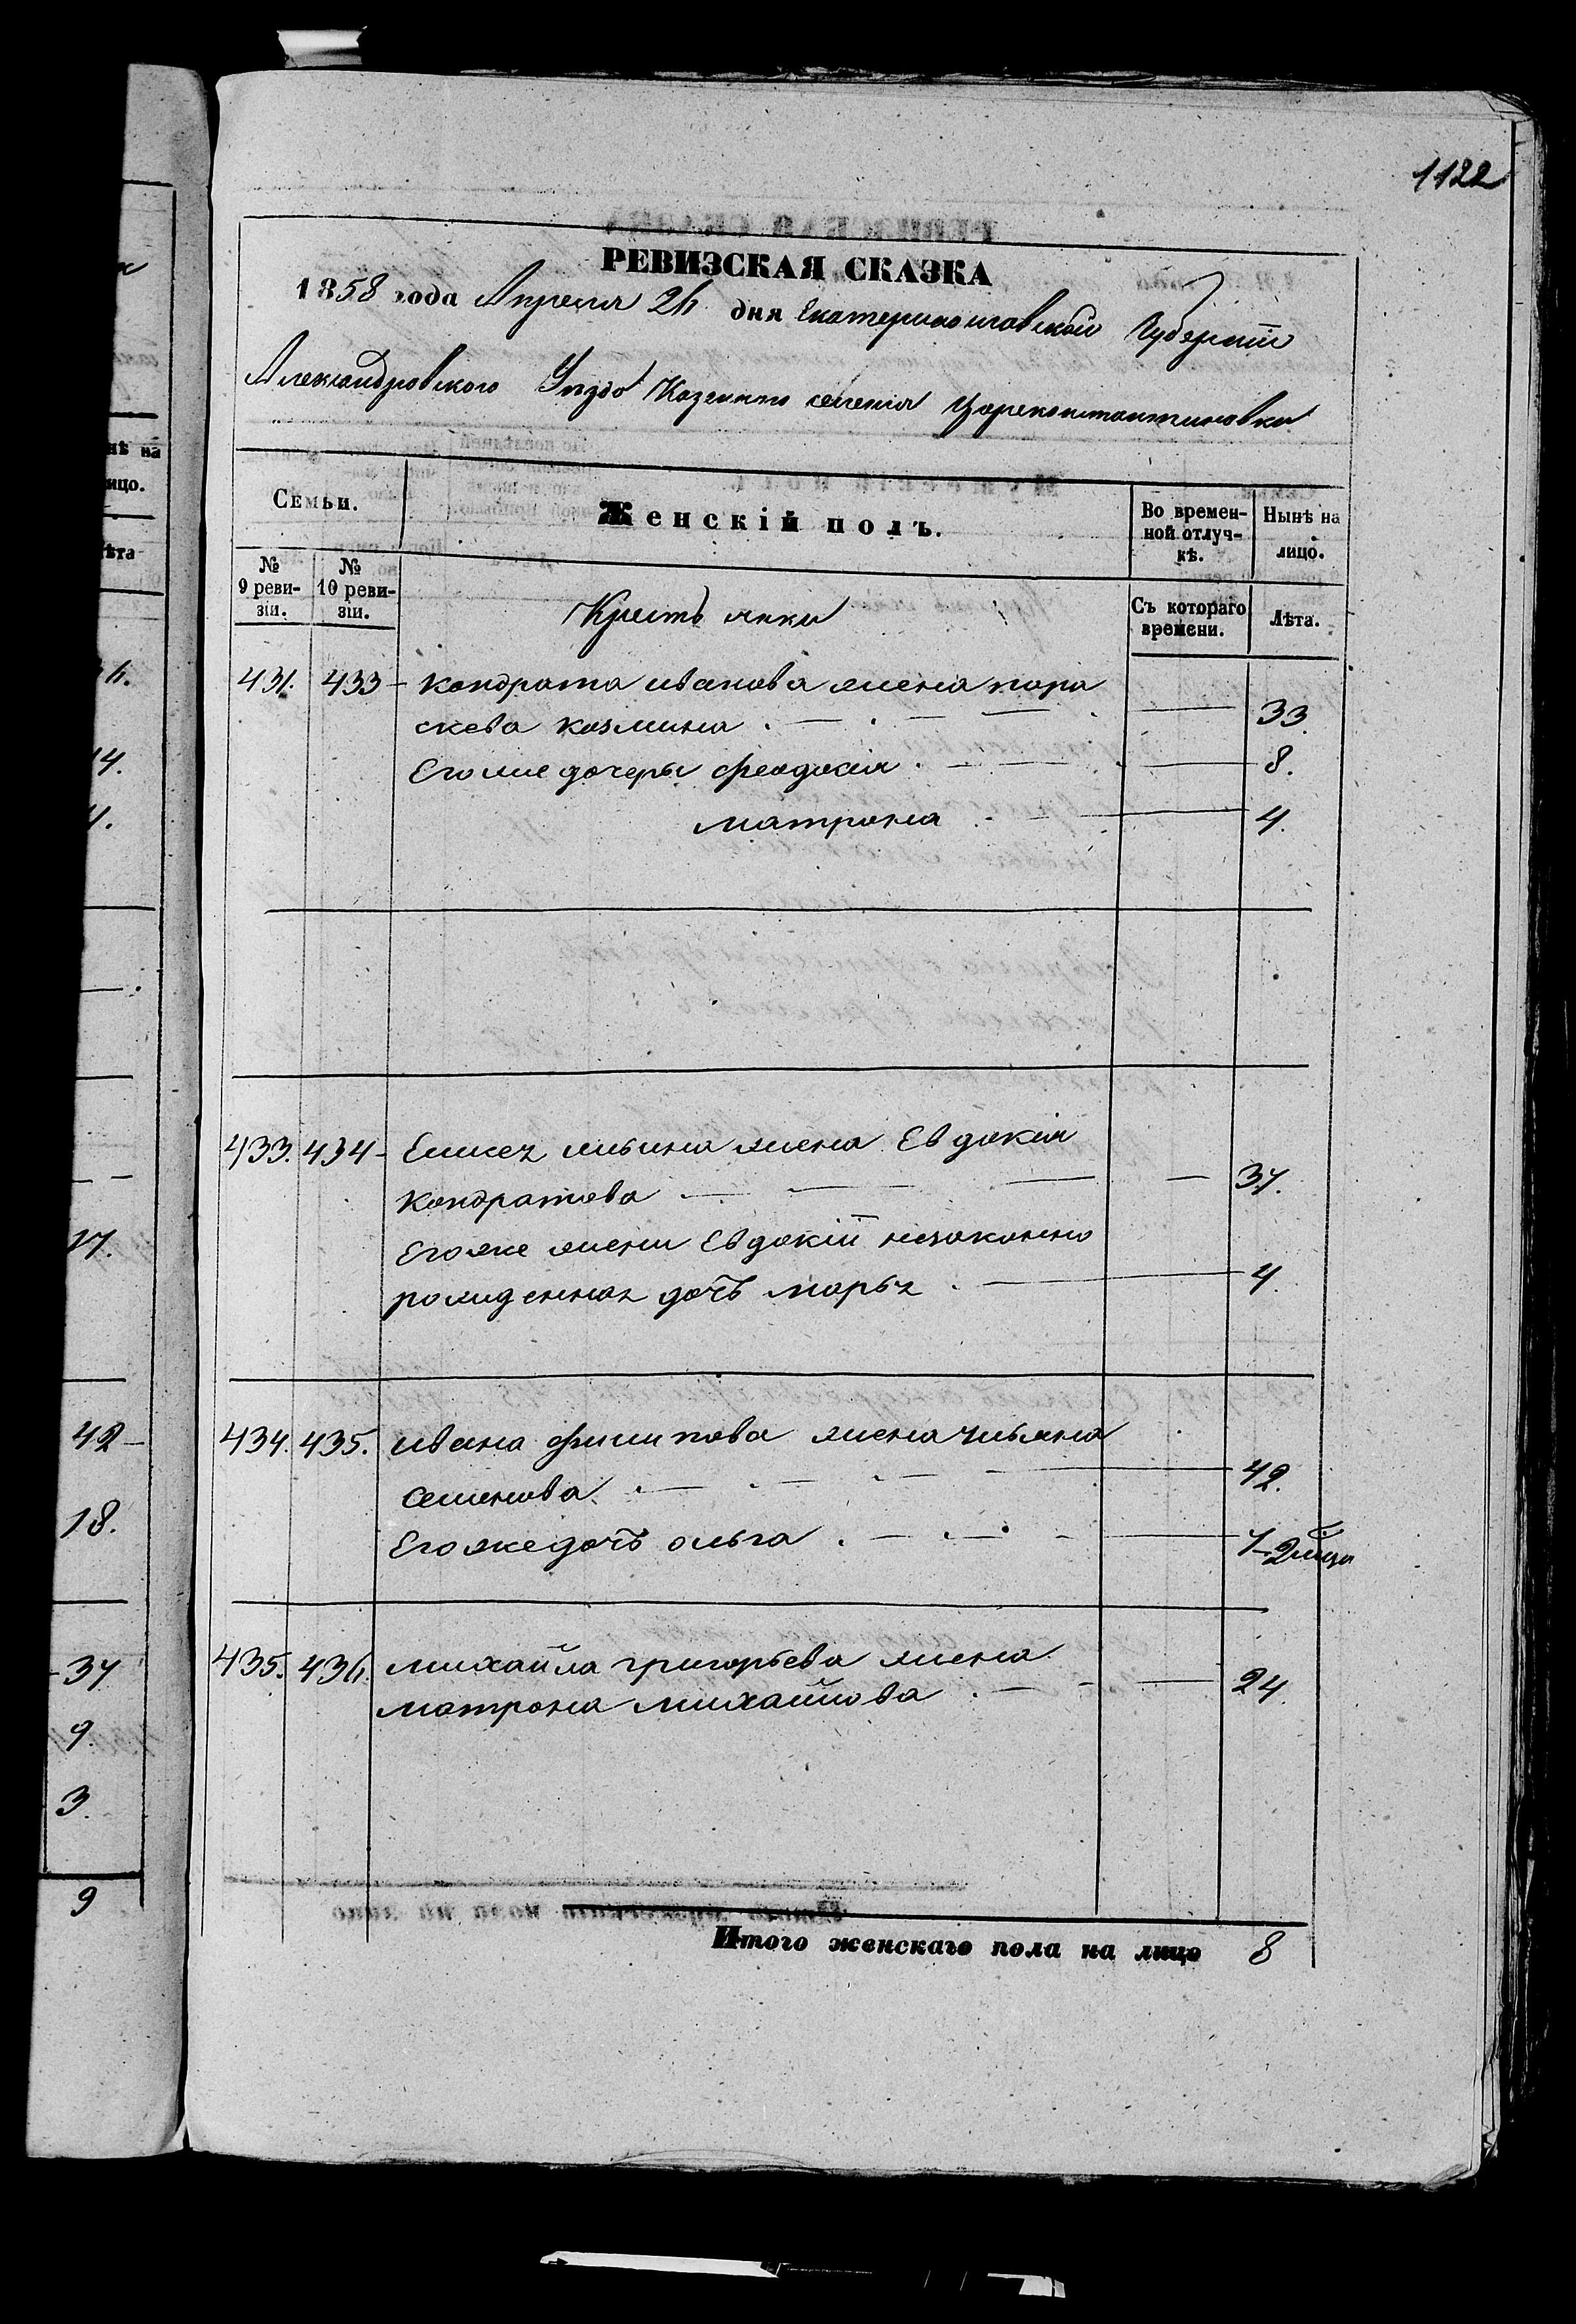 1122
РЕВИЗСКАЯ СКАЗКА
1858 года Апреля 26 дня Екатеринославской Губернiи
Александровского Уезда Казенного селенiя Цареконстантиновки
Семьи.
Женскiй полъ.
Во времен-
ной отлуч-
кѣ.
Нынѣ на
лицо.
№
9 реви-
зiи.
№
10 реви-
зiи.
Крестьянки
Съ котораго
времени.
Лѣта.
431. 433 - кондрата иванова жена пора
скева козмина . — . — — 33.
Его же дочеры феодосiя . — — 8.
матрона . — 4.
433. 434 - Елисея ильина жена Евдокiя
кондратова — — — 37.
Его же жены Евдокiи незаконно
рожденная дочь марья . — 4.
434. 435. ивана филипова жена ульяна
семенова . — . — . — 42.
Его же дочь ольга . — . — . — 1-2 меця
435. 436. михайла григорьева жена
матрона михайлова . — - — 24.
Итого женскаго пола на лицо 8
нѣ на
ицо.
ѣта
6.
14.
17.
42 —
18.
37
9.
3.
9